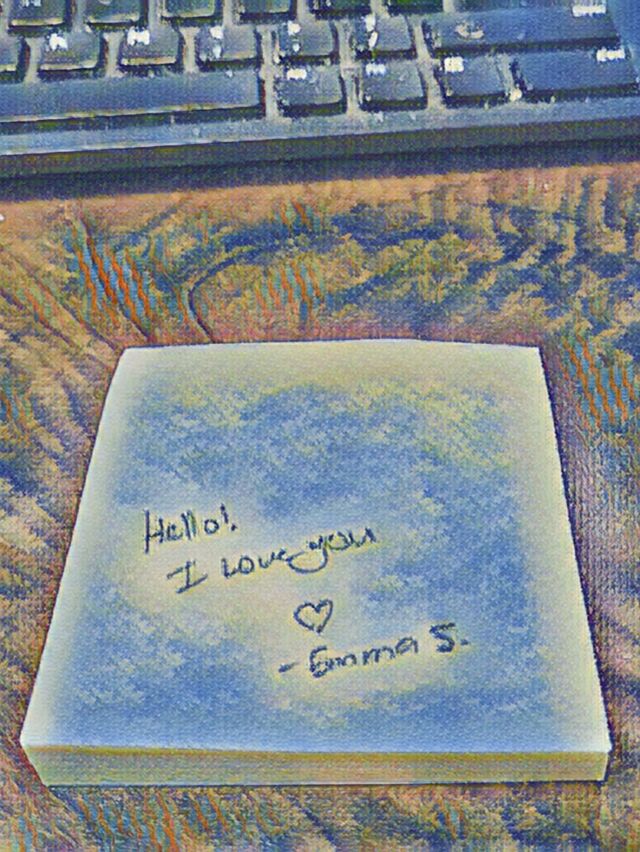 Hello!
I love you
♡
- Emma S.